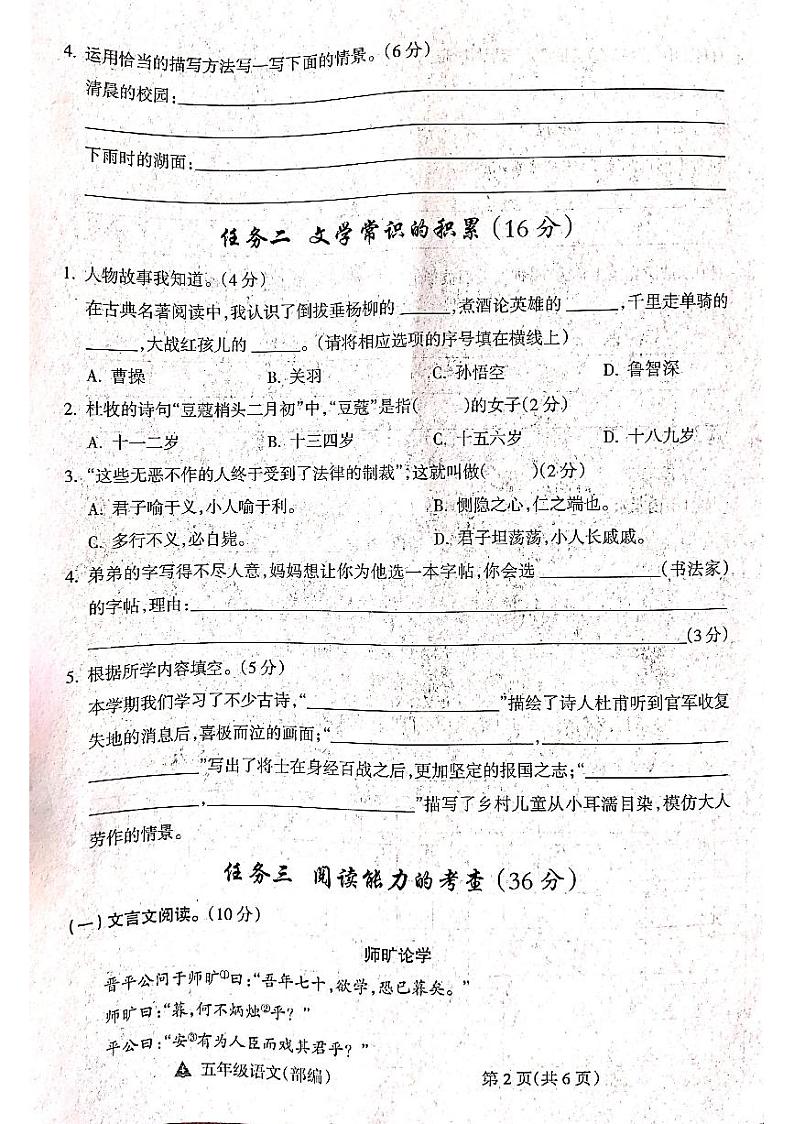 4. 运用恰当的描写方法写一写下面的情景。(6分)
清晨的校园:
下雨时的湖面:
任务二 文学常识的积累(16分)
1. 人物故事我知道。(4分)
在古典名著阅读中,我认识了倒拔垂杨柳的______,煮酒论英雄的______,千里走单骑的
______,大战红孩儿的______。(请将相应选项的序号填在横线上)
A. 曹操 B. 关羽 C. 孙悟空 D. 鲁智深
2. 杜牧的诗句“豆蔻梢头二月初”中,“豆蔻”是指( )的女子(2分)
A. 十一二岁 B. 十三四岁 C. 十五六岁 D. 十八九岁
3. “这些无恶不作的人终于受到了法律的制裁”;这就叫做( )(2分)
A. 君子喻于义,小人喻于利。 B. 恻隐之心,仁之端也。
C. 多行不义,必自毙。 D. 君子坦荡荡,小人长戚戚。
4. 弟弟的字写得不尽人意,妈妈想让你为他选一本字帖,你会选____________(书法家)
的字帖,理由:
(3分)
5. 根据所学内容填空。(5分)
本学期我们学习了不少古诗,“____________”描绘了诗人杜甫听到官军收复
失地的消息后,喜极而泣的画面;“____________,
____________”写出了将士在身经百战之后,更加坚定的报国之志;“____________
____________,____________”描写了乡村儿童从小耳濡目染,模仿大人
劳作的情景。
任务三 阅读能力的考查(36分)
(一)文言文阅读。(10分)
师旷论学
晋平公问于师旷①曰:“吾年七十,欲学,恐已暮矣。”
师旷曰:“暮,何不炳烛②乎?”
平公曰:“安③有为人臣而戏其君乎?”
五年级语文(部编) 第2页(共6页)